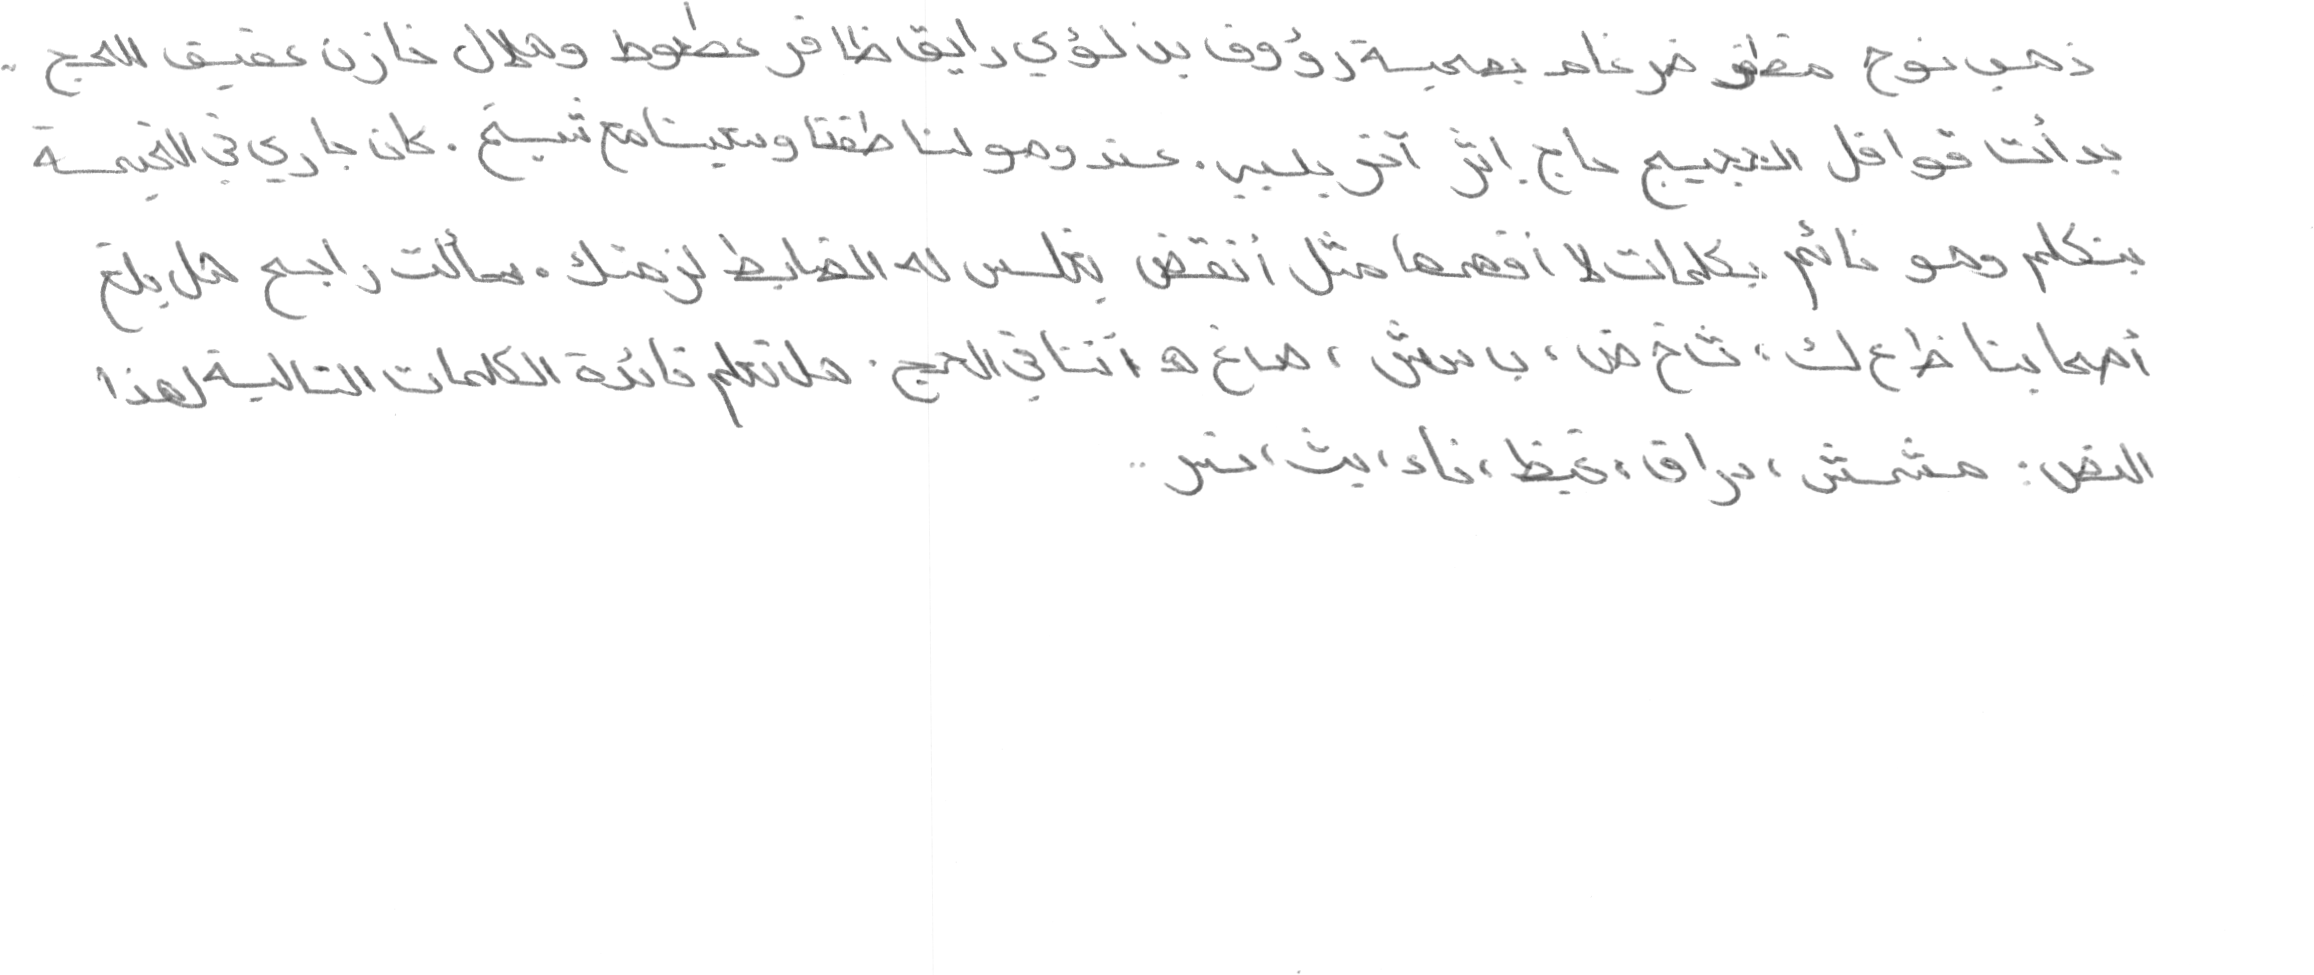 ذهب نوح مظفر ضرغام بصحبة رؤوف بن لؤي رايق ظافر عطوط وهلال خازن عفيف للحج ..
بدأت قوافل الحجيج حاج إثر آخر يلبي . عند وصولنا طفنا وسعينا مع شيخ . كان جاري في الخيمة
يتكلم وهو نائم بكلمات لا أفهمها مثل أنقض يغلس له الضابط لزمتك . سألت راجح هل بلغ
أصحابنا ظ ع ك ، ث خ ض ، ب س ش ، ص غ هـ أننا في الحج . هل تعلم فائدة الكلمات التالية لهذا
النص : مشمش ، براق ، غيظ ، ناء ، يث ، ستر ..